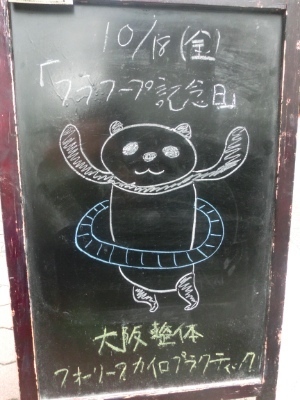 10/18(金)
「フラフープ記念日」
大阪整体
フォーリーブスカイロプラクティック